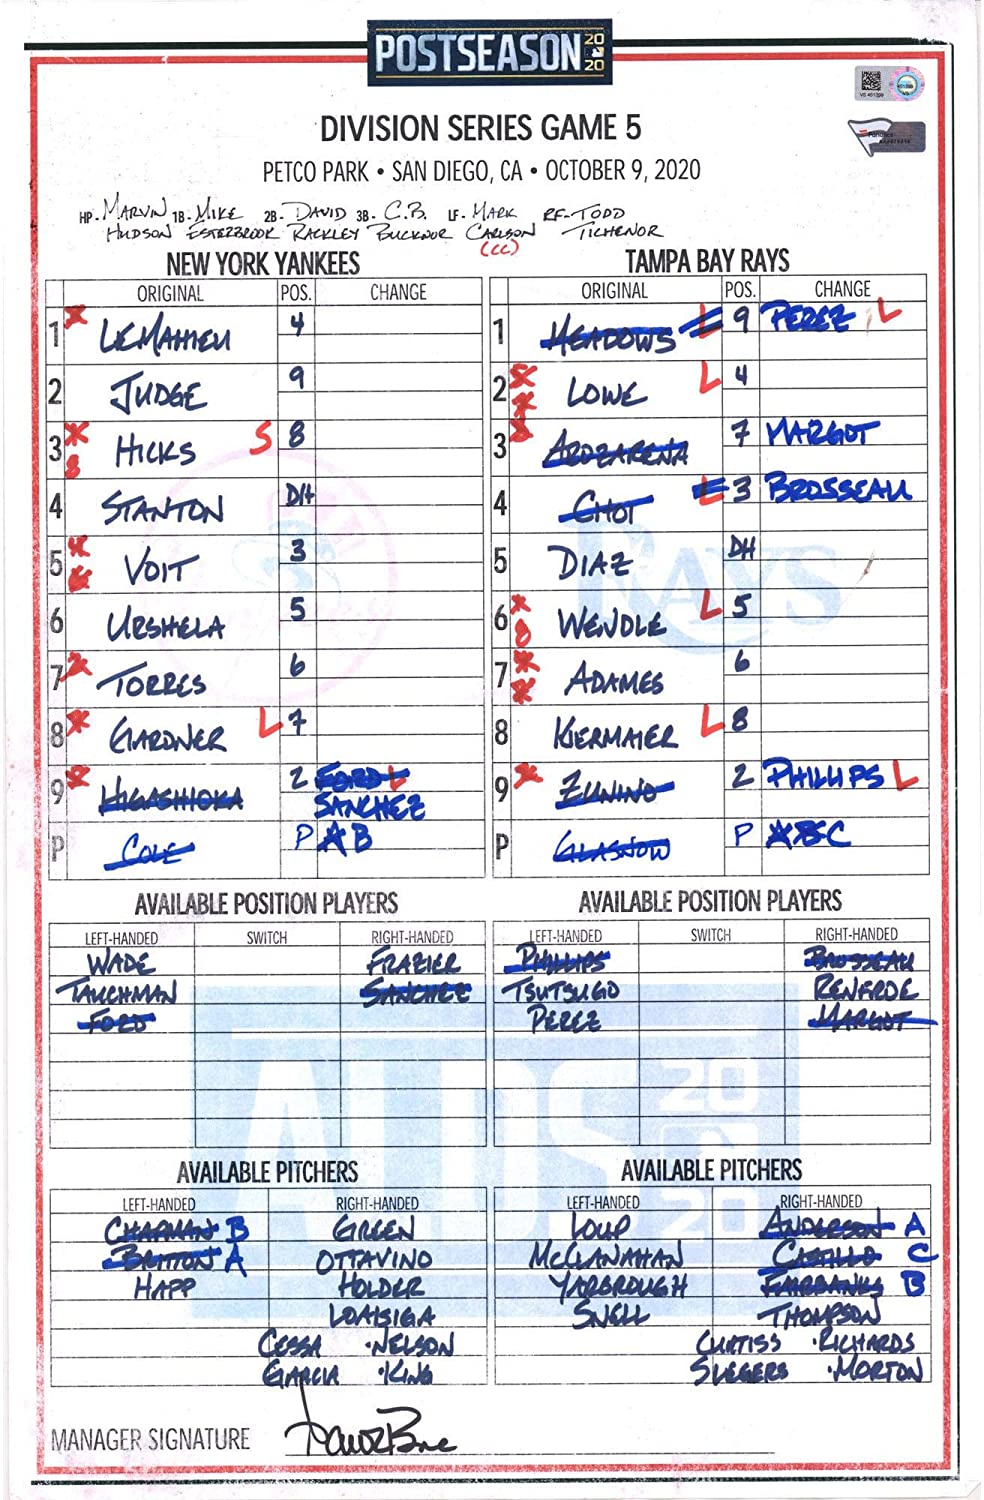 POSTSEASON 20 20
DIVISION SERIES GAME 5
PETCO PARK • SAN DIEGO, CA • OCTOBER 9, 2020
HP- MARVIN 1B- MIKE 2B- DAVID 3B- C.B. LF- MARK RF- TODD
HUDSON ESTERBROOK RACKLEY BUCKNOR CARLSON TICHENOR
(CC)
NEW YORK YANKEES
ORIGINAL POS. CHANGE
1 LEMAHIEU 4
2 JUDGE 9
3 HICKS S 8
4 STANTON DH
5 VOIT 3
6 URSHELA 5
7 TORRES 6
8 GARDNER L 7
9 HIGASHIOKA 2 FORD L
SANCHEZ
P COLE P A B
TAMPA BAY RAYS
ORIGINAL POS. CHANGE
1 MEADOWS L 9 PEREZ L
2 LOWE L 4
3 AROZARENA 7 MARGOT
4 CHOI L 3 BROSSEAU
5 DIAZ DH
6 WENDLE L 5
7 ADAMES 6
8 KIERMAIER L 8
9 ZUNINO 2 PHILLIPS L
P GLASNOW P A B C
AVAILABLE POSITION PLAYERS
LEFT-HANDED SWITCH RIGHT-HANDED
WADE FRAZIER
TAUCHMAN SANCHEZ
FORD
AVAILABLE POSITION PLAYERS
LEFT-HANDED SWITCH RIGHT-HANDED
PHILLIPS BROSSEAU
TSUTSUGO RENFROE
PEREZ MARGOT
AVAILABLE PITCHERS
LEFT-HANDED RIGHT-HANDED
CHAPMAN B GREEN
BRITTON A OTTAVINO
HAPP HOLDER
LOAISIGA
CESSA •NELSON
GARCIA •KING
AVAILABLE PITCHERS
LEFT-HANDED RIGHT-HANDED
LOUP ANDERSON A
MCCLANAHAN CASTILLO C
YARBROUGH FAIRBANKS B
SNELL THOMPSON
CURTISS •RICHARDS
SLEGERS •MORTON
RAYS
ALDS
20
20
MANAGER SIGNATURE